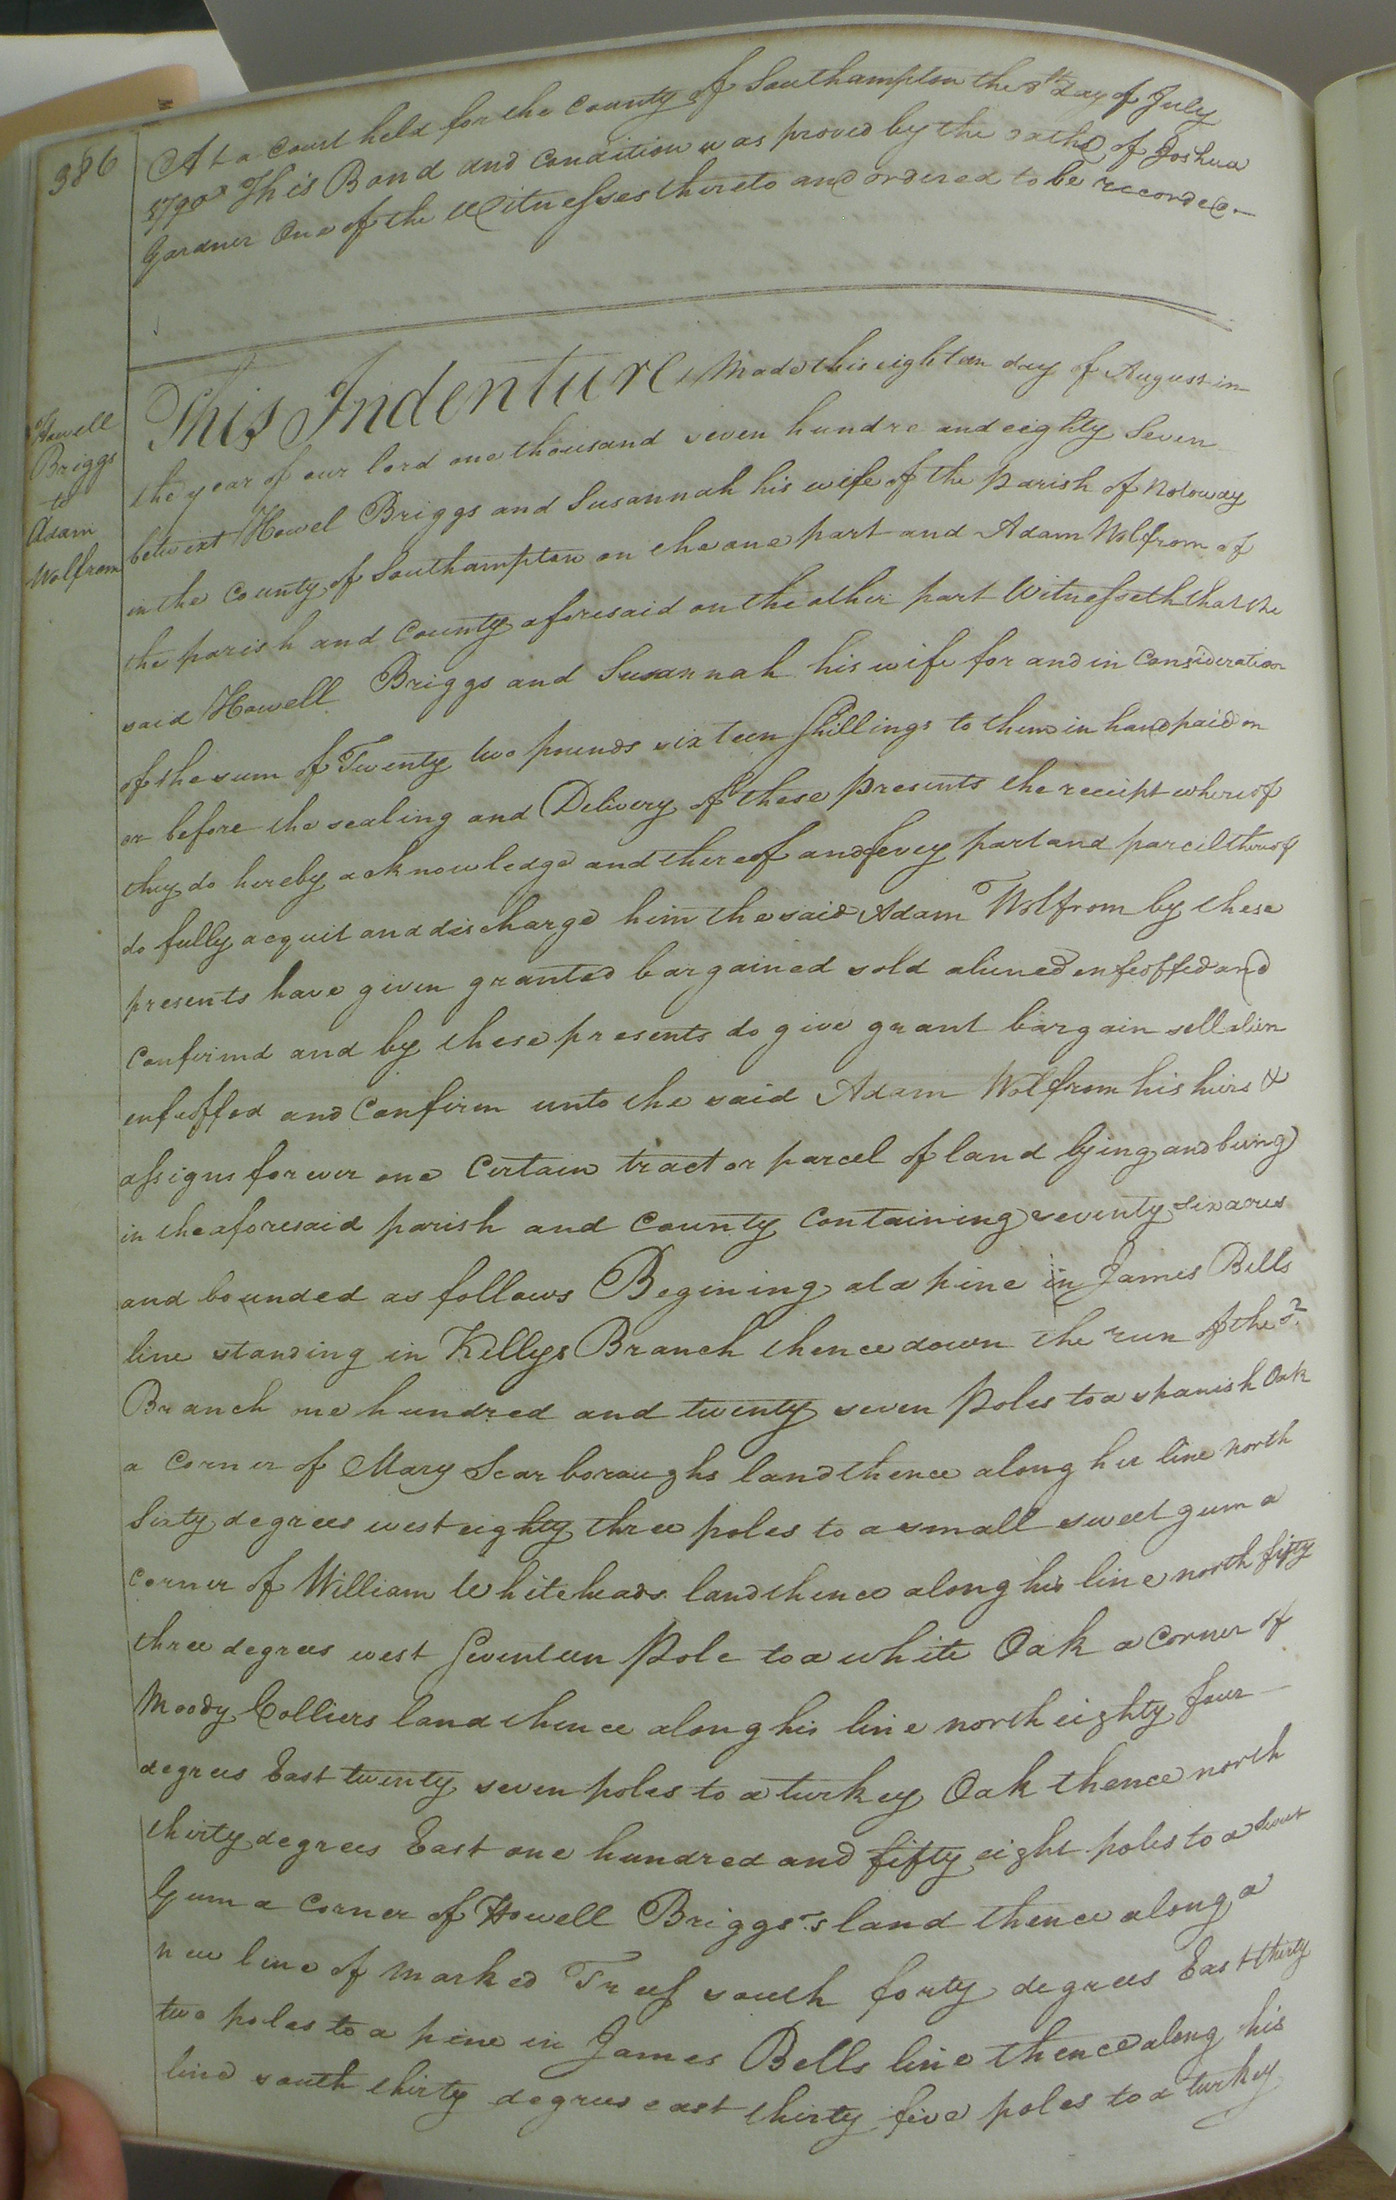 386
At a Court held for the County of Southampton the 8th Day of July
1790 This Bond and Condition was proved by the oaths of Joshua
Gardner One of the Witnesses thereto and ordered to be recorded.—
Howell
Briggs
to
Adam
Wolfrom
This Indenture Made this eighteen day of August in
the year of our lord one thousand seven hundre and eighty Seven
betwixt Howel Briggs and Susannah his wife of the parish of Notoway
in the County of Southampton on the one part and Adam Wolfrom of
the parish and County aforesaid on the other part Witnesseth that the
said Howell Briggs and Susannah his wife for and in Consideration
of the sum of Twenty two pounds sixteen Shillings to them in hand paid on
or before the sealing and Delivery of these presents the receipt whereof
they do hereby acknowledge and thereof and evey part and parcil thereof
do fully acquit and discharge him the said Adam Wolfrom by these
presents have given granted bargained sold aliened enfeoffed and
Confirmd and by these presents do give grant bargain sell alien
enfeoffed and Confirm unto the said Adam Wolfrom his heirs &
assigns forever one Certain tract or parcel of land lying and being
in the aforesaid parish and County Containing seventy six acres
and bounded as follows Begining at a pine in James Bells
line standing in Kellys Branch thence down the run of the sd.
Branch one hundred and twenty seven poles to a spanish Oak
a Corner of Mary Scarboroughs land thence along her line north
Sixty degrees west eighty three poles to a small sweet gum a
Corner of William Whiteheads land thence along his line north fifty
three degrees west Seventeen Pole to a white Oak a Corner of
Moody Colliers land thence along his line north eighty four
degrees East twenty seven poles to a turkey Oak thence north
thirty degrees East one hundred and fifty eight poles to a Sweet
Gum a Corner of Howell Briggs's land thence along a
new line of marked Trees south forty degrees East thirty
two poles to a pine in James Bells line thence along his
line south thirty degrees east thirty five poles to a turkey